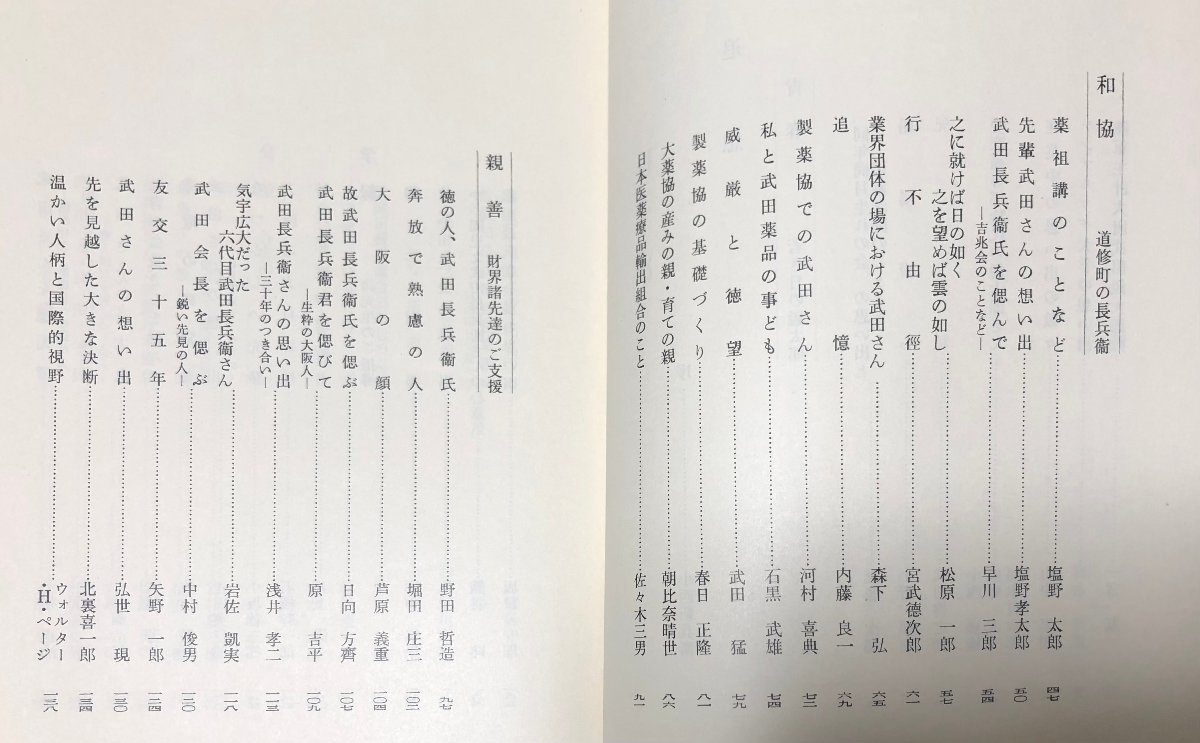 和協 道修町の長兵衞
薬祖講のことなど……塩野 太郎 四七
先輩武田さんの想い出……塩野孝太郎 五〇
武田長兵衞氏を偲んで
―吉兆会のことなど―……早川 三郎 五四
之に就けば日の如く
之を望めば雲の如し……松原 一郎 五七
行不由徑……宮武徳次郎 六一
業界団体の場における武田さん……森下 弘 六五
追憶……内藤 良一 六九
製薬協での武田さん……河村 喜典 七三
私と武田薬品の事ども……石黒 武雄 七四
威厳と徳望……武田 猛 七九
製薬協の基礎づくり……春日 正隆 八一
大薬協の産みの親・育ての親……朝比奈晴世 八六
日本医薬療品輸出組合のこと……佐々木三男 九一
親善 財界諸先達のご支援
徳の人、武田長兵衞氏……野田 哲造 九七
奔放で熟慮の人……堀田 庄三 一〇二
大阪の顔……芦原 義重 一〇四
故武田長兵衞氏を偲ぶ……日向 方齊 一〇七
武田長兵衞君を偲びて
―生粋の大阪人―……原 吉平 一〇九
武田長兵衞さんの思い出
―三十年のつき合い―……浅井 孝二 一一三
気宇広大だった
六代目武田長兵衞さん……岩佐 凱実 一一八
武田会長を偲ぶ
―鋭い先見の人―……中村 俊男 一二〇
友交三十五年……矢野 一郎 一二四
武田さんの想い出……弘世 現 一三〇
先を見越した大きな決断……北裏喜一郎 一三四
温かい人柄と国際的視野……ウォルター・H・ページ 一三八